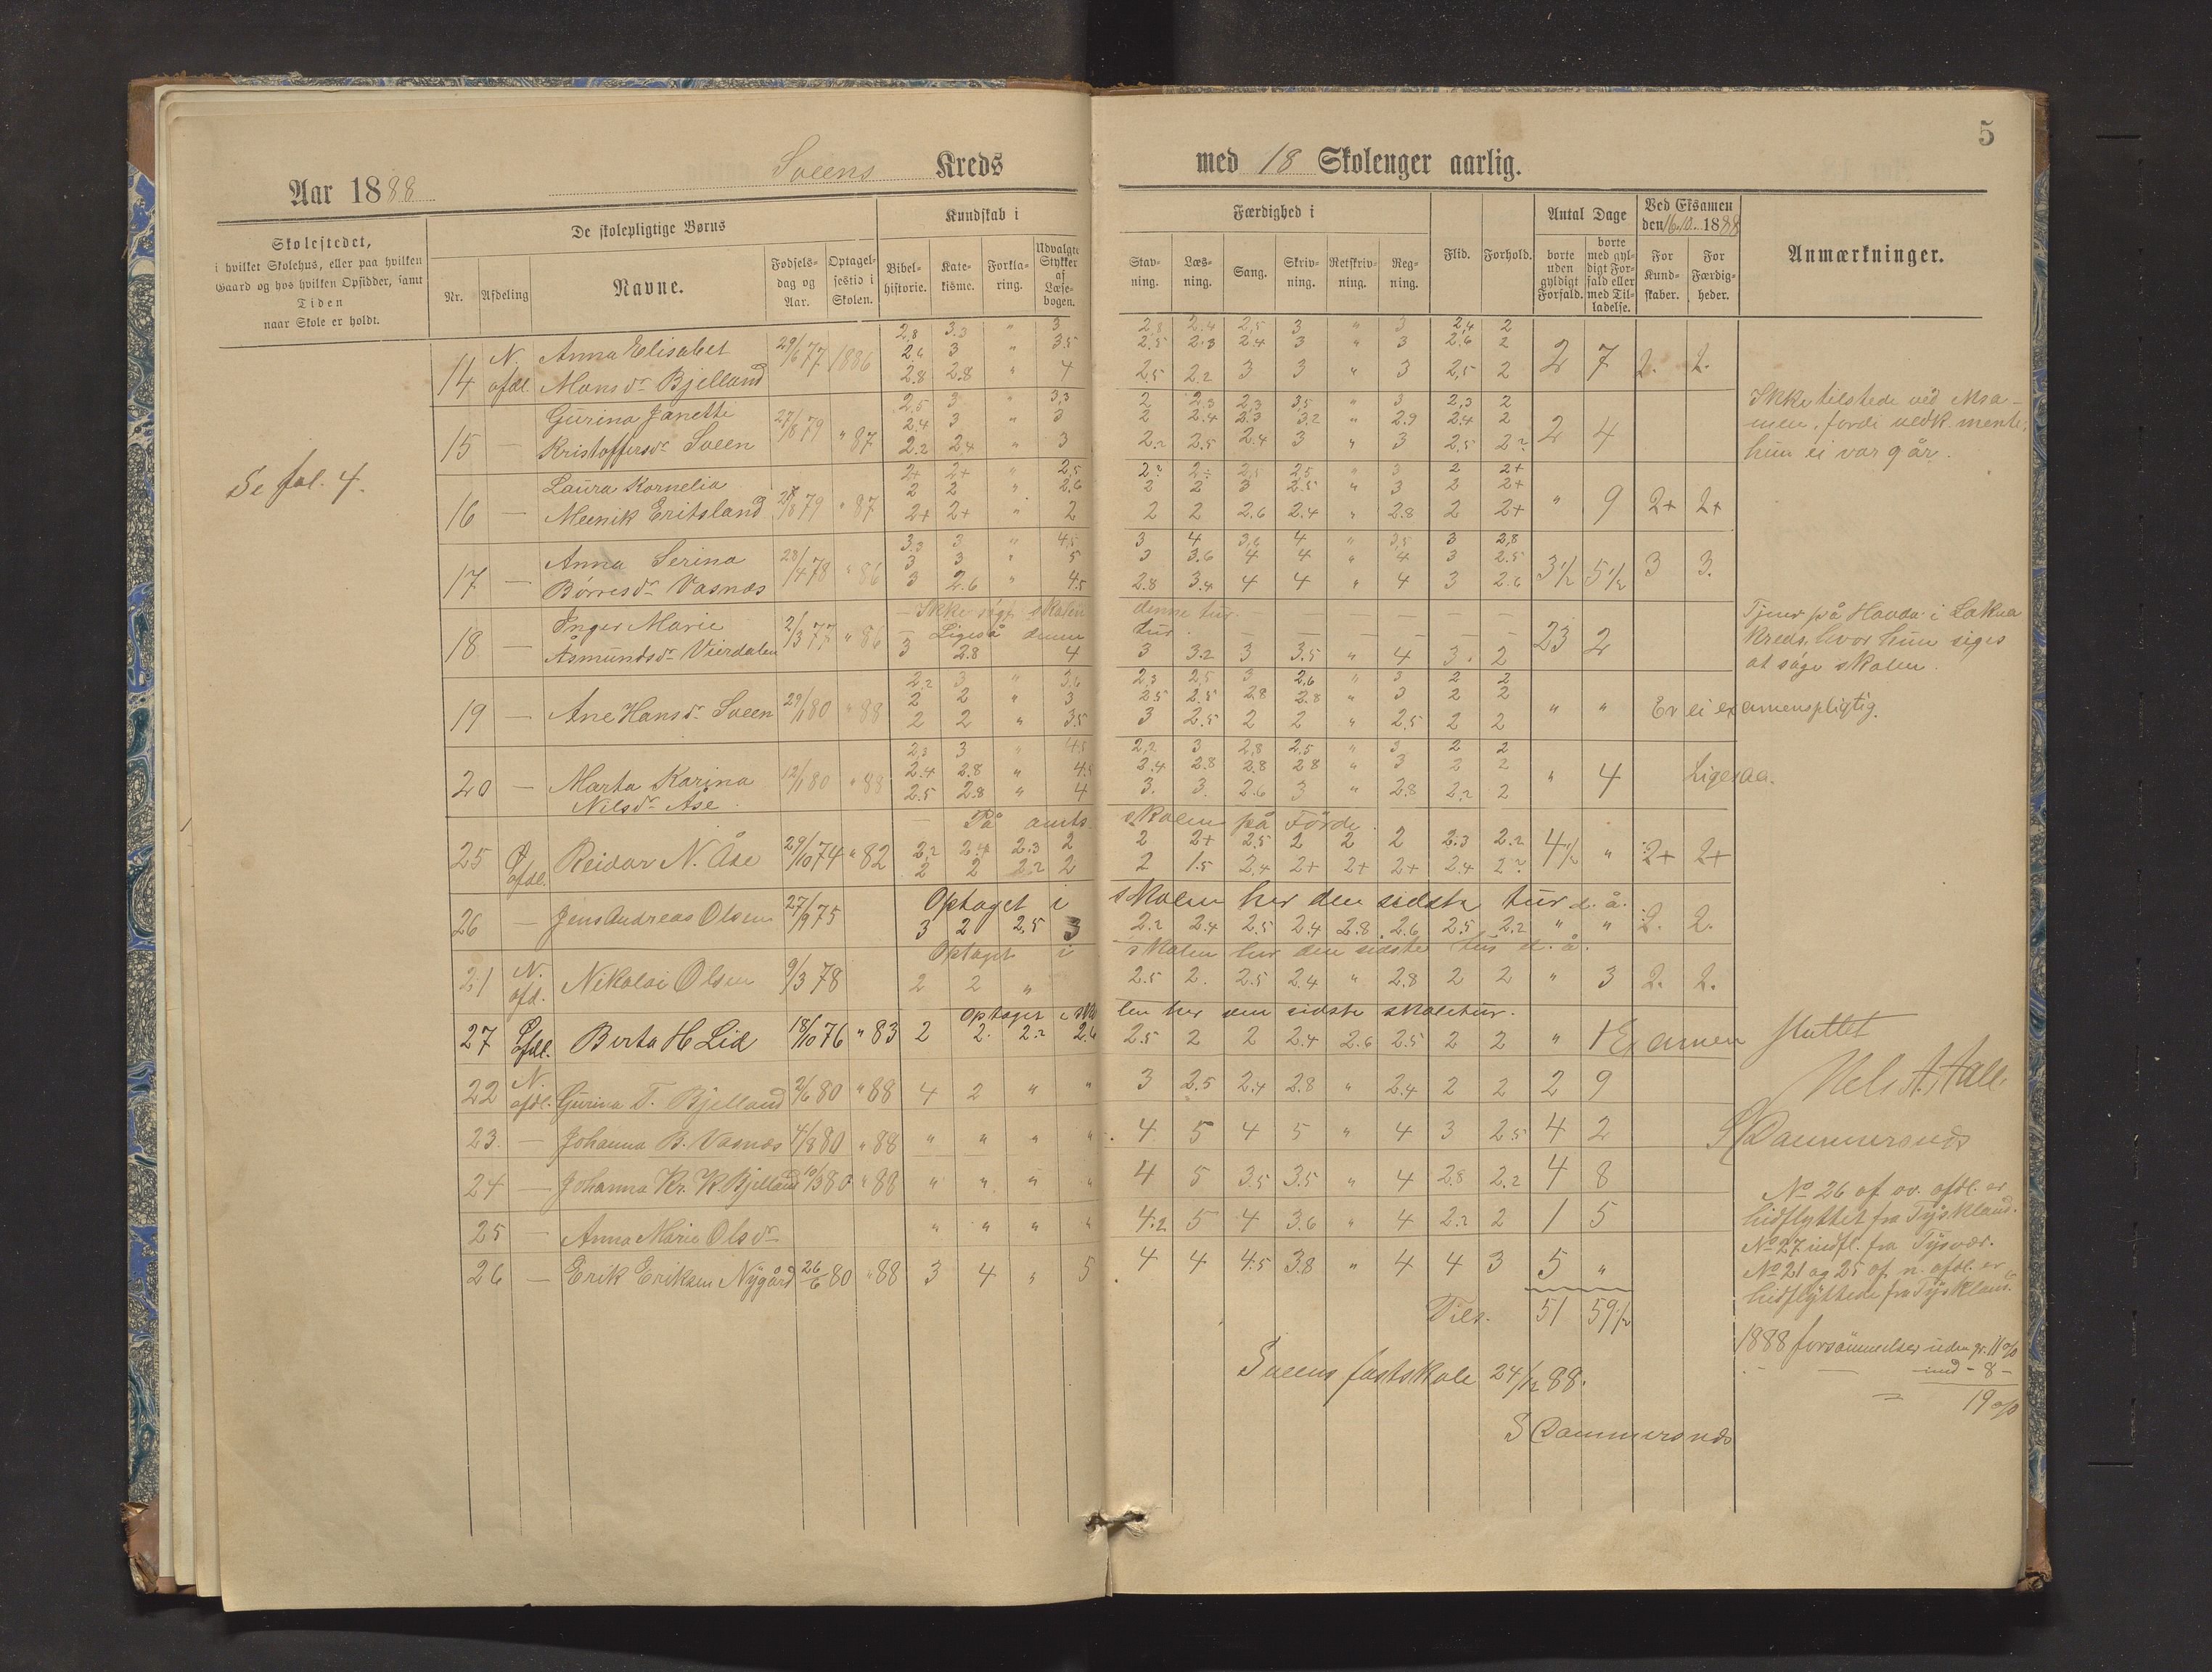 5
Aar 1888 Sveens Kreds med 18 Skolenger aarlig.
Skolestedet,
i hvilket Skolehus, eller paa hvilken
Gaard og hos hvilken Opsidder, samt
Tiden
naar Skole er holdt.
De skolepligtige Børns
Nr. Afdeling Navne. Fødselsdag og Aar. Optagelsestid i Skolen.
Kundskab i
Bibelhistorie. Katekisme. Forklaring. Udvalgte Stykker af Læsebogen.
Færdighed i
Stavning. Læsning. Sang. Skrivning. Retskrivning. Regning.
Flid. Forhold.
Antal Dage
borte uden gyldigt Forfald. borte med gyldigt Forfald eller med Tilladelse.
Ved Eksamen
den 16/10 1888
For Kundskaber. For Færdigheder.
Anmærkninger.
Se fol. 4.
2,8 3.3 " 3 2,8 2.4 2,5 3 " 3 2,4 2
14 N. afdl. Anna Elisabet 29/6 77 1886 2.6 3 " 3.5 2.5 2.3 2.4 3 " 3 2.6 2 2 7 2. 2.
Monsdr Bjelland 2.8 2.8 " 4 2.5 2.2 3 3 " 3 2,5 2
Gurina Janette 2,5 3 " 3,3 2 2.3 2,3 3,5 " 3 2,3 2
15 — 27/8 79 " 87 2.4 3 " 3 2 2.4 2.3 3.2 " 2.9 2.4 2 2 4
Kristoffersdr Sveen 2.2 2.4 " 3 2.2 2.5 2.4 3 " 3 2,5 2.2
Ikke tilstede ved eksa-
men, fordi vedk. mente,
hun ei var 9 år.
Laura Kornelia 2+ 2+ " 2,5 2.2 2÷ 2,5 2,5 " 3 2 2+
2 2 " 2,6 2 2 3 2.5 " 3 2 2+
16 — Meenik Eritsland 79 " 87 2+ 2+ " 2 2 2 2.6 2.4 " 2.8 2 2+ " 9 2+ 2+
3.3 3 " 4,5 3 4 3,6 4 " 3,5 3 2,8
Anna Serina 28/4 78 " 86 3 3 " 5 3 3.6 4 4 " 4 3 2.5
17 — Børresdr Vasnes 3 2.6 " 4.5 2.8 3.4 4 4 " 4 3 2.6 3½ 5½ 3 3.
— Ikke søgt skolen denne tur. — — — — — —
Inger Marie 2/3 77 " 86 — Ligeså denne tur. — — — — — — —
18 — Asmundsdr Vierdalen 3 2.8 4 3 3.2 3 3.5 " 4 3. 2 23 2
Tjener på Havda i Lokna
Kreds, hvor hun siges
at søge skolen.
2,2 3 " 3,6 2,3 2,5 3 2,6 " 3 2 2
2 2 " 3 2.5 2.5 2.8 2.8 " 3 2 2
19 — Ane Hansdr Sveen 29/1 80 " 88 2 2 " 3.5 3 2.5 2 2 " 2.5 2 2 " " Er ei examenspligtig.
2,3 3 " 4.5 2,2 3 2,8 2.5 " 3 2 2
2.4 2.8 " 4.5 2.4 2.8 2.8 2.8 " 3 2 2
20 — Marta Karina 12/1 80 " 88 2.5 2.8 " 4 3. 3. 2.6 3 " 2.8 2.2 2 " 4 Ligesaa.
Nilsdr Åse
— På amts- skolen på Förde.
25 Ø afdl. Reidar N. Åse 29/10 74 " 82 2,2 2.4 2.3 2 2 2+ 2.5 2 2 2 2.3 2.2 4½ " 2+ 2+
2 2 2.2 2 2 1.5 2.4 2+ 2+ 2+ 2.4 2.2
Optaget i skolen her den sidste tur d. å.
26 — Jens Andreas Olsen 27/9 75 3 2 2,5 3 2.2 2.4 2.5 2.4 2.8 2.6 2.5 2.2 " " 2. 2.
Optaget i skolen her den sidste tur d. å.
21 N. afd. Nikolai Olsen 9/3 78 2 2 " 2.5 2. 2.5 2.4 " 2.8 2 2 " 3 2. 2.
optaget i skolen her den sidste skoletur.
27 Ø afdl. Berta H Lid 18/10 76 " 83 2 2. 2.2 2.6 2.5 2 2 2.4 2.6 2.5 2 2 " 1 Examen sluttet
22 N. afdl. Gurina T. Bjelland 2/6 80 " 88 4 2 " " 3 2.5 2.4 2.8 " 2.4 2 2 2 9
23. — Johanna B. Vasnes 4/8 80 " 88 " " " " 4 5 4 5 " 4 3 2.5 4 2
S Dammersnds
24 — Johanna Kr. K Bjelland 10/3 80 " 88 " " " " 4 5 3.5 3.5 " 4 2.8 2.2 4 8
25 — Anna Marie Olsdr " " " " 4.2 5 4 3.6 " 4 2.2 2 1 5
26 — Erik Eriksen Nygård 26/6 80 " 88 3 4 " 5 4 4 4.5 3.8 " 4 4 3 5 "
No 26 af øv. afdl. er
hidflyttet fra Tyskland.
No 27 indfl. fra Tysvær.
No 21 og 25 af n. afdl. er
hidflyttede fra Tyskland.
Tils. 51 59½
1888 forsømmelser uden gr. 11 %
— — med - 8 -
= 19 %
Sveens fastskole 24/12 88.
S Dammersnds